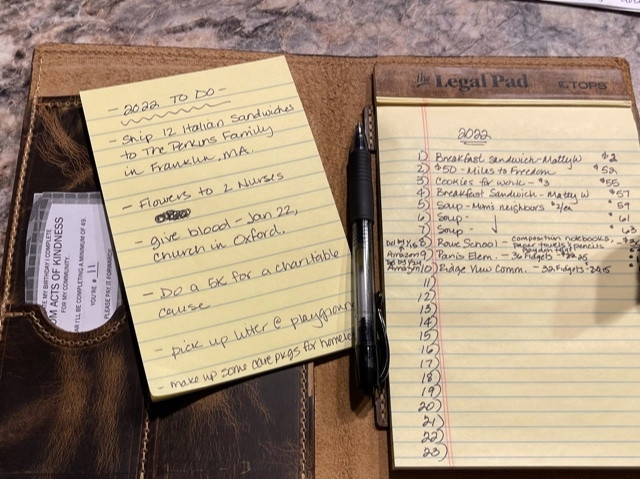 - 2022 TO DO -
- Ship 12 Italian Sandwiches
to The Perkins Family
in Franklin, MA.
- Flowers to 2 Nurses
- give blood - Jan 22,
church in Oxford.
- Do a 5K for a charitable
cause
- pick up litter @ playground
- make up some care pkgs for homeless
TE MY BIRTHDAY I COMPLETE
OM ACTS OF KINDNESS
FOR MY COMMUNITY.
AR I'LL BE COMPLETING A MINIMUM OF 49.
YOU'RE # 11
PLEASE PAY IT FORWARD
the Legal Pad TOPS
2022
1) Breakfast Sandwich - Matty W $2
2) $50 - Miles to Freedom $52
3) Cookies for work - $3 $55
4) Breakfast Sandwich - Matty W $57
5) Soup - Mimi neighbors $2/ea 59
6) Soup - $61
7) Soup - 63
8) Rowe School - composition notebooks,
paper towels & pens
Amazon 9) Panis Elem. - 36 Fidgets -
Amazon 10) Ridge View Comm. - 32 Fidgets -
11)
12)
13)
14)
15)
16)
17)
18)
19)
20)
21)
22)
23)